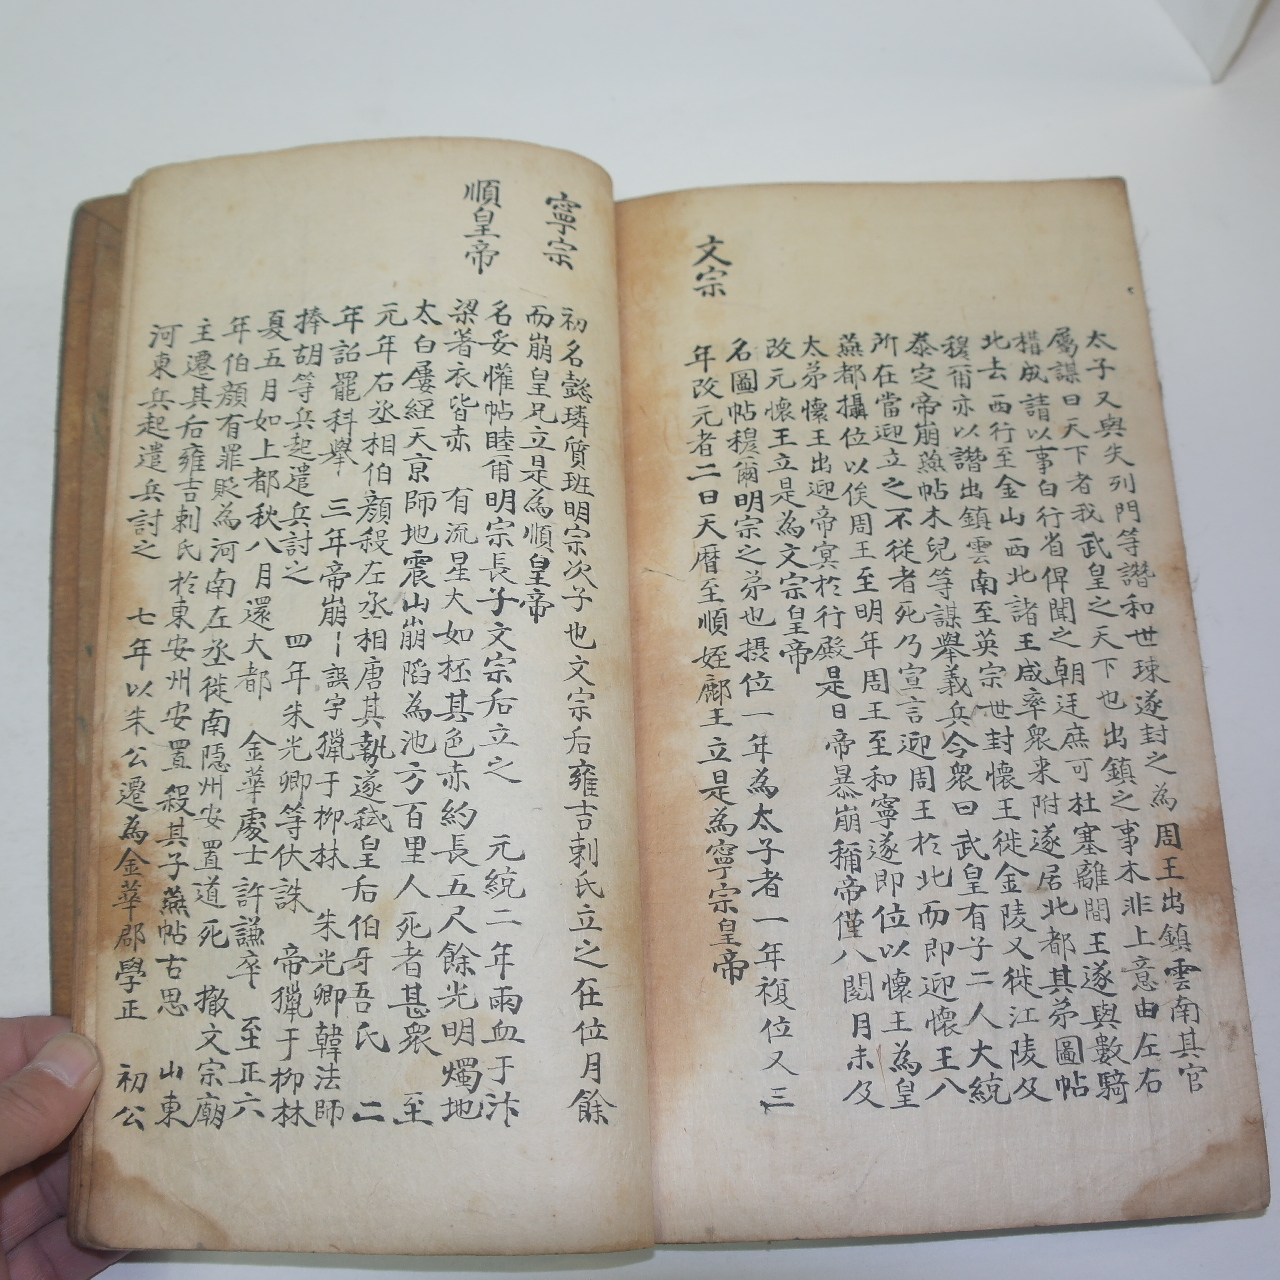 太子又與失列門等譖和世㻋遂封之為周王出鎮雲南其官
屬謀曰天下者我武皇之天下也出鎮之事本非上意由左右
構成請以事白行省俾聞之朝廷庶可杜塞離間王遂與數騎
北去西行至金山西北諸王咸率衆来附遂居北都其弟圖帖
穆爾亦以譖出鎮雲南至英宗世封懷王徙金陵又徙江陵及
泰定帝崩燕帖木兒等謀舉義兵令衆曰武皇有子二人大統
所在當迎立之不從者死乃宣言迎周王於北而即迎懷王入
燕都攝位以俟周王至明年周王至和寧遂即位以懷王為皇
太弟懷王出迎帝㝠於行殿是日帝暴崩稱帝僅八閱月未及
改元懷王立是為文宗皇帝
文宗
名圖帖穆爾明宗之弟也摂位一年為太子者一年複位又三
年改元者二日天曆至順姪鄜王立是為寧宗皇帝
寧宗
初名懿璘質班明宗次子也文宗后雍吉剌氏立之在位月餘
而崩皇兄立是為順皇帝
順皇帝
名妥懽帖睦甭明宗長子文宗后立之 元統二年雨血于汴
梁著衣皆赤 有流星大如柸其色赤約長五尺餘光明燭地
太白屢經天京師地震山崩陷為池方百里人死者甚衆 至
元年右丞相伯顔殺左丞相唐其執遂弑皇后伯牙吾氏 二
年詔罷科舉 三年帝崩〡誤字獵于柳林 朱光卿韓法師
捧胡等兵起遣兵討之 四年朱光卿等伏誅 帝獵于柳林
夏五月如上都秋八月還大都 金華處士許謙卒 至正六
年伯顔有罪貶為河南左丞徙南隠州安置道死 撤文宗廟
主遷其后雍吉剌氏於東安州安置殺其子燕帖古思 山東
河東兵起遣兵討之 七年以朱公遷為金華郡學正 初公